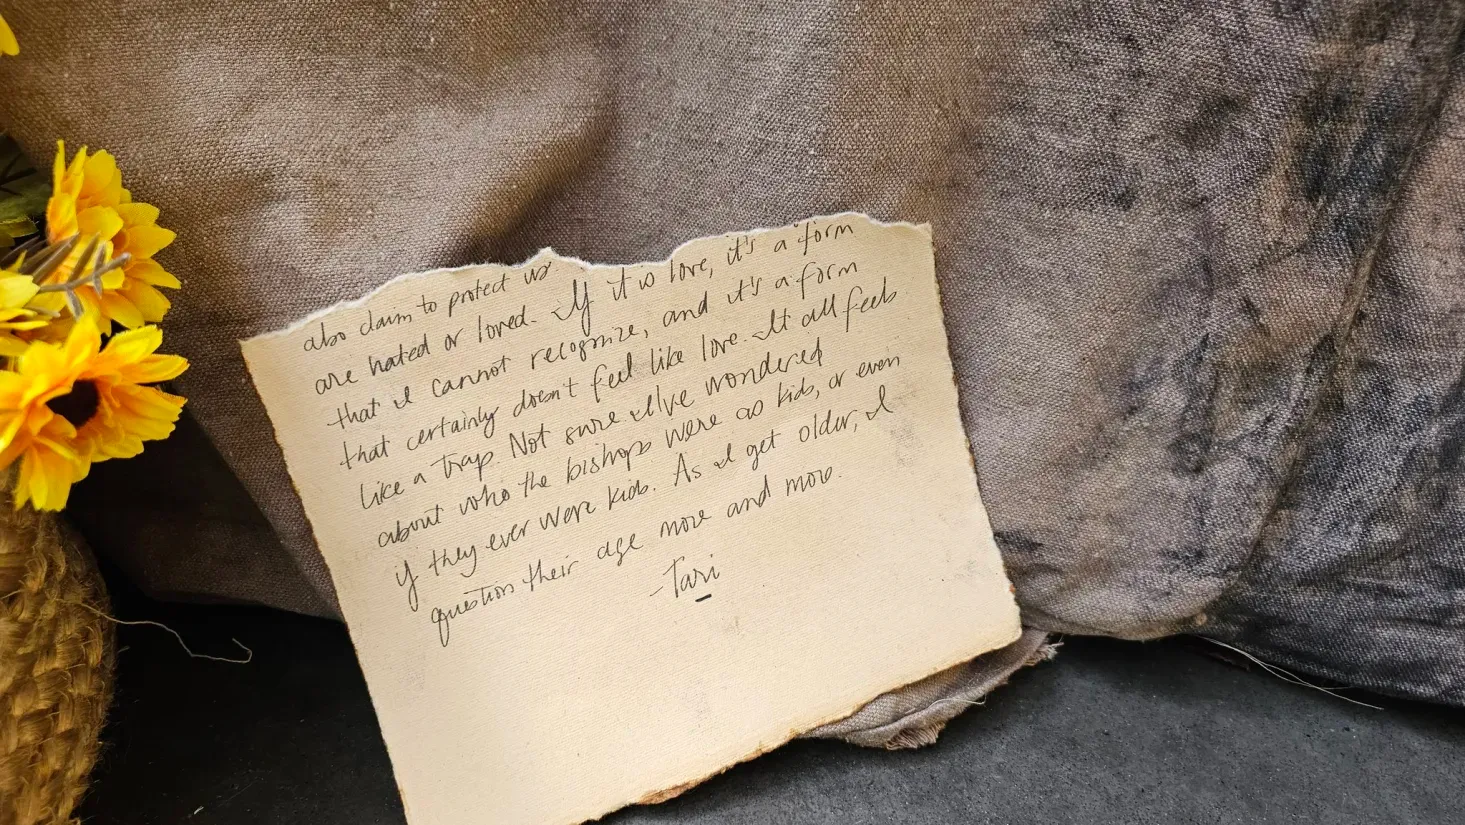 also claim to protect us
are hated or loved. If it is love, it's a form
that I cannot recognize, and it's a form
that certainly doesn't feel like love. It all feels
like a trap. Not sure I I've wondered
about who the bishops were as kids, or even
if they ever were kids. As I get older, I
question their age more and more.
-Tari